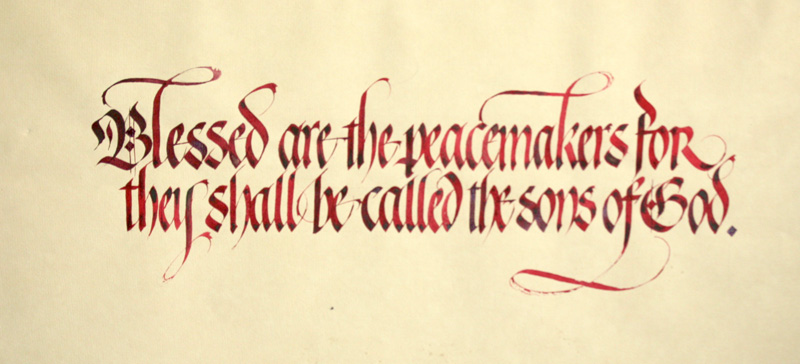 Blessed are the peacemakers for
they shall be called the sons of God.